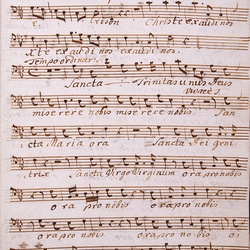 Christe exaudi nos
Xte exaudi nos exaudi nos.
Tempo ordinar:
Sancta Trinitas unus Deus
miserere nobis miserere nobis. San
cta Maria ora Sancta Dei geni
trix Sancta Virgo Virginum ora pro nobis
ora pro nobis ora pro nobis
ora pro nobis ora pro nobis